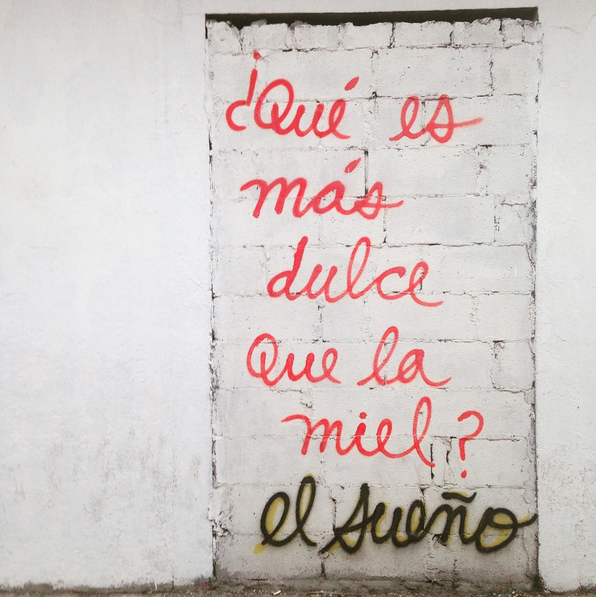 ¿Qué es
más
dulce
que la
miel?
el sueño